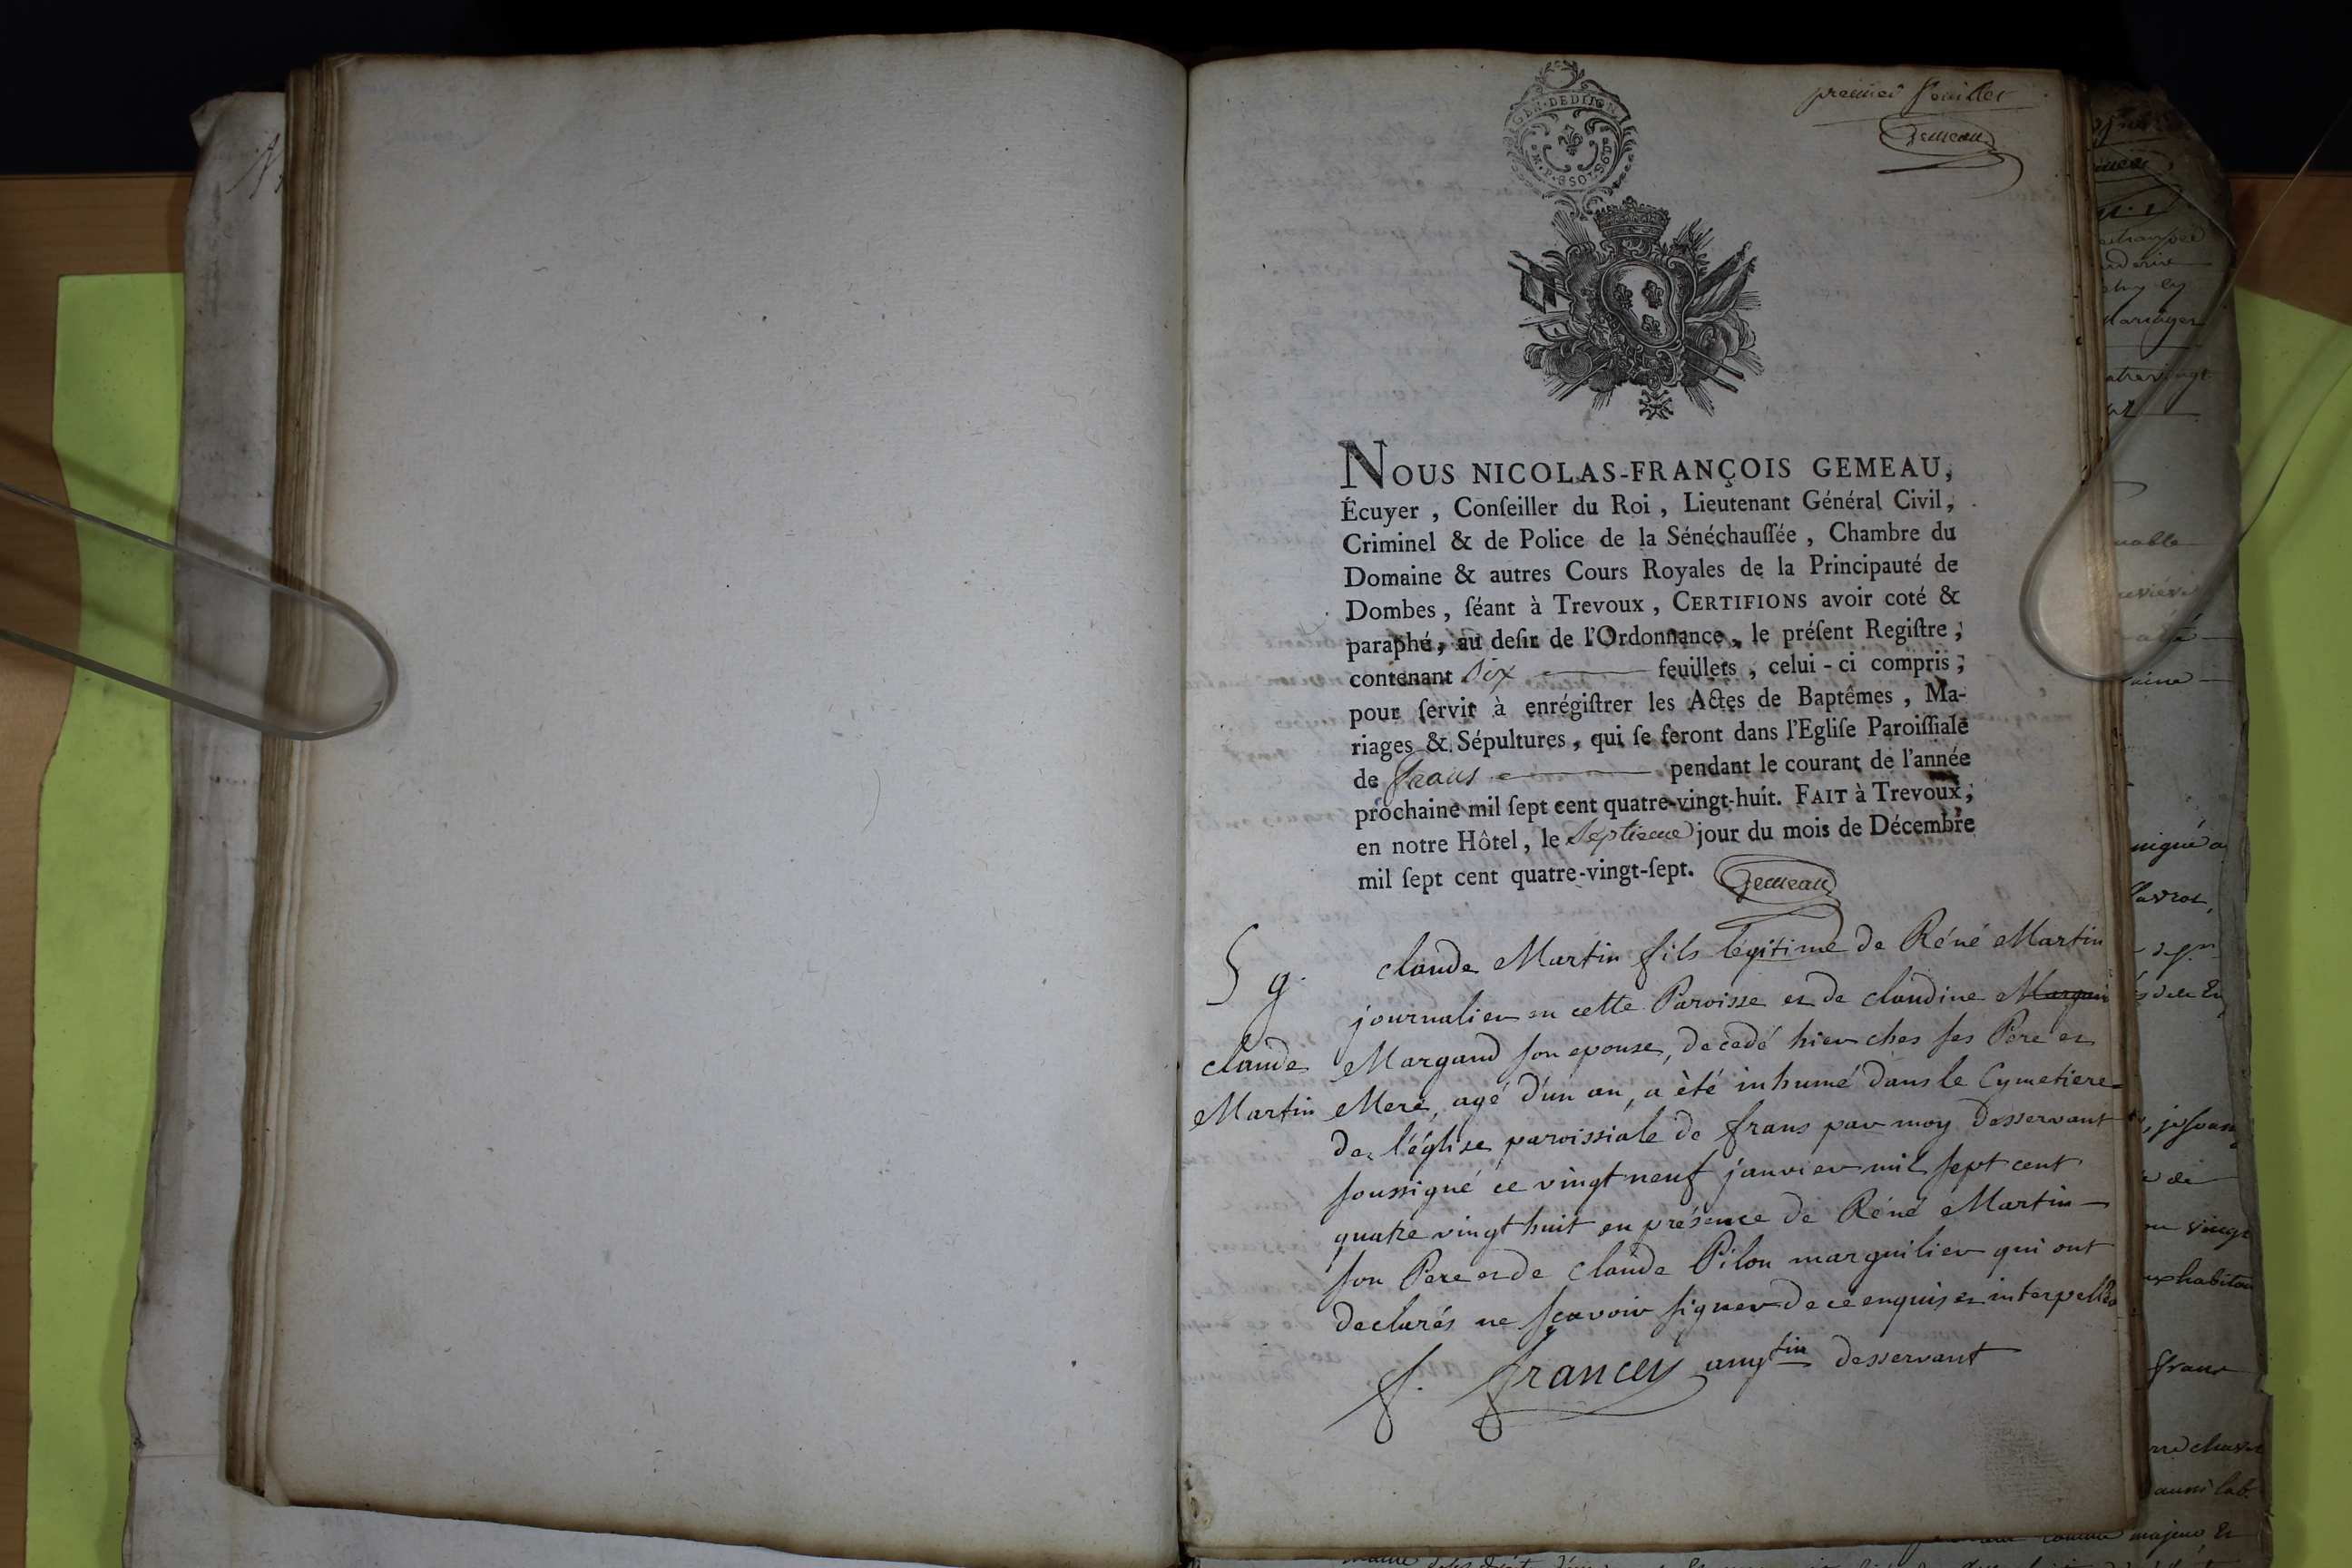 premier feuillet
Gemeau
GEN. DEDITION
M. P. 8 SOLS 9 D
NOUS NICOLAS-FRANÇOIS GEMEAU,
Écuyer, Conſeiller du Roi, Lieutenant Général Civil,
Criminel & de Police de la Sénéchauſſée, Chambre du
Domaine & autres Cours Royales de la Principauté de
Dombes, ſéant à Trevoux, CERTIFIONS avoir coté &
paraphé, au deſir de l'Ordonnance, le préſent Regiſtre,
contenant Six feuillets, celui-ci compris,
pour ſervir à enrégiſtrer les Actes de Baptêmes, Ma-
riages & Sépultures, qui ſe feront dans l'Egliſe Paroiſſiale
de frans pendant le courant de l'année
prochaine mil ſept cent quatre-vingt-huit. FAIT à Trevoux,
en notre Hôtel, le Septieme jour du mois de Décembre
mil ſept cent quatre-vingt-ſept. Gemeau
S g.
claude
Martin
claude Martin fils légitime de Réné Martin
journalier en cette Paroisse et de claudine Margan
Margand son epouse, decedé hier ches ses Pere et
Mere, agé d'un an, a èté inhumé dans le Cymetiere
de l'église paroissiale de frans par moy desservant
soussigné ce vingt neuf janvier mil sept cent
quatre vingt huit en présence de Réné Martin
son Pere et de claude Pilon marguilier qui ont
declarés ne sçavoir signer de ce enquis et interpellés
f. francey desservant